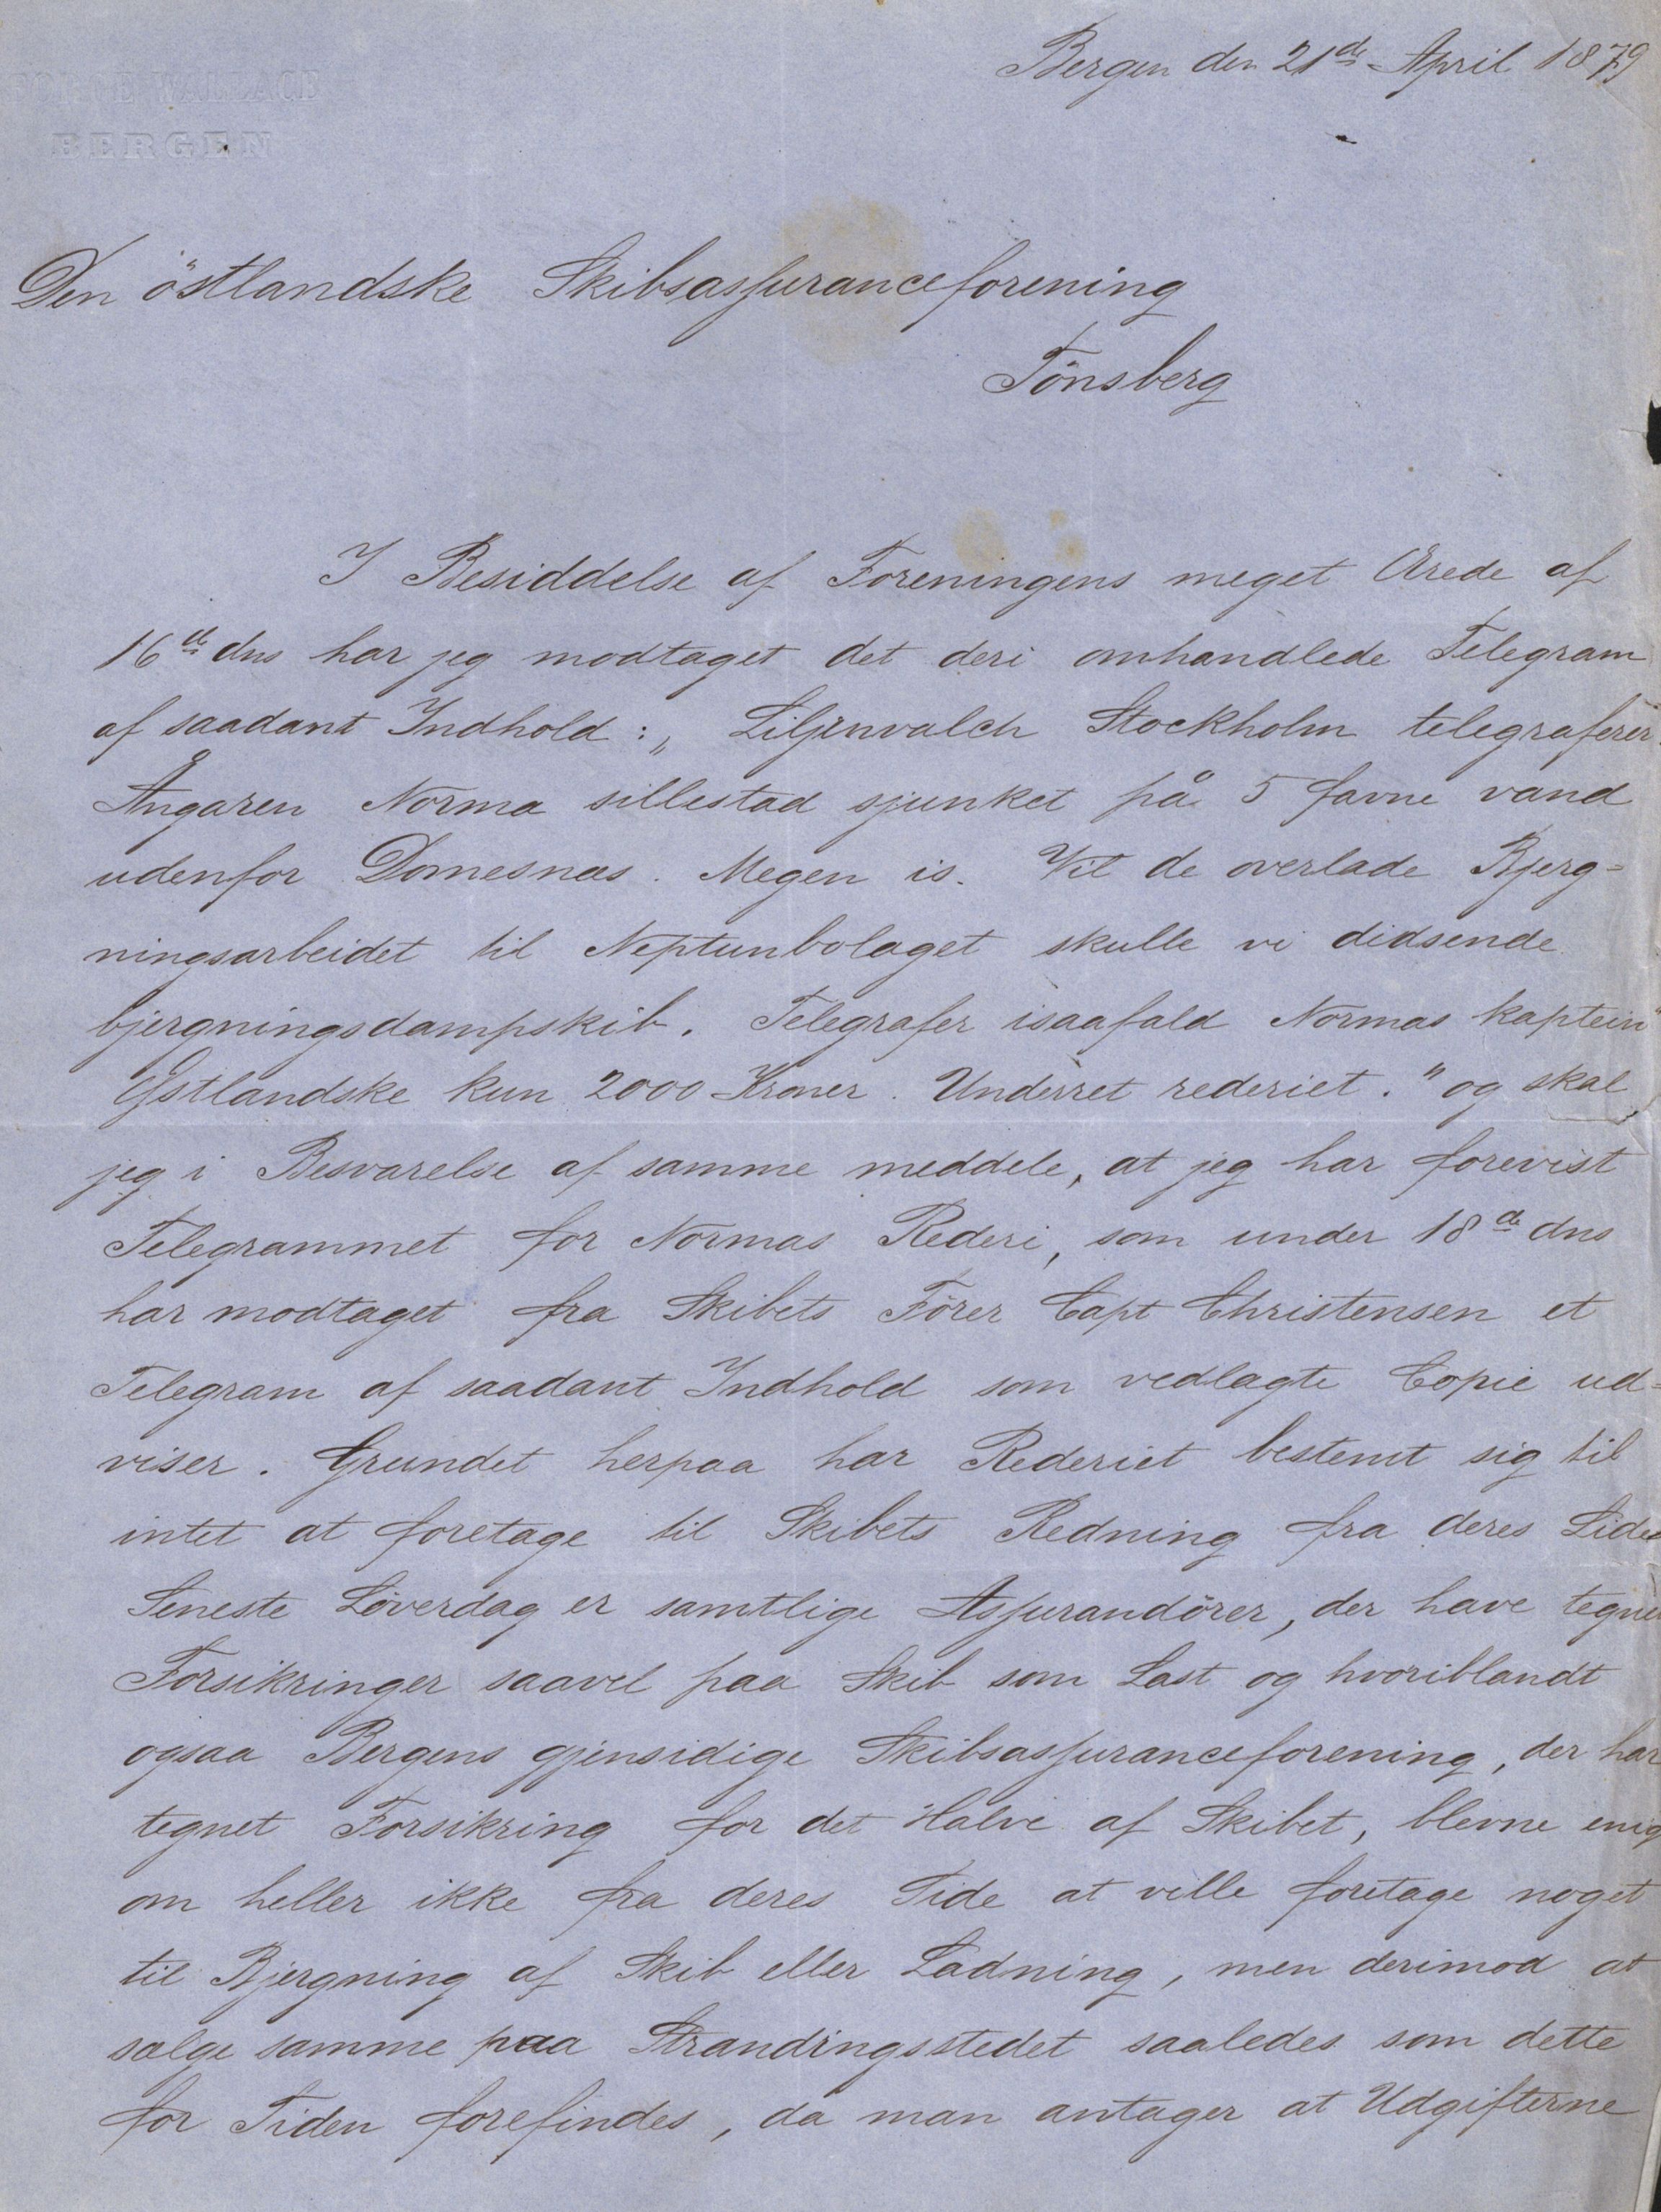 Bergen den 21de April 1879
WALLACE
BERGEN
Den östlandske Skibsassuranceforening
Tönsberg
I Besiddelse af Foreningens meget Ærede af
16de dns har jeg modtaget det deri omhandlede Telegram
af saadant Indhold: „Liljenvalch Stockholm telegraferer
Ångaren Norma sillestad sjunket på 5 favne vand
udenfor Domesnæs. Megen is. Vil de overlade Bjerg=
ningsarbeidet til Neptunbolaget skulle vi didsende
bjergningsdampskib. Telegrafer isaafald Normas kaptein"
Østlandske kun 2000 Kroner. Underret rederiet." og skal
jeg i Besvarelse af samme meddele, at jeg har forevist
Telegrammet for Normas Rederi, som under 18de dns
har modtaget fra Skibets Förer Capt Christensen et
Telegram af saadant Indhold som vedlagte Copie ud=
viser. Grundet herpaa har Rederiet bestemt sig til
intet at foretage til Skibets Redning fra deres Side
Seneste Löverdag er samtlige Assurandörer, der have tegnet
Forsikringer saavel paa Skib som Last og hvoriblandt
ogsaa Bergens gjensidige Skibsassuranceforening, der har
tegnet Forsikring for det Halve af Skibet, blevne enig
om heller ikke fra deres Side at ville foretage noget
til Bjergning af Skib eller Ladning, men derimod at
sælge samme paa Strandingsstedet saaledes som dette
for Tiden forefindes, da man antager at Udgifterne